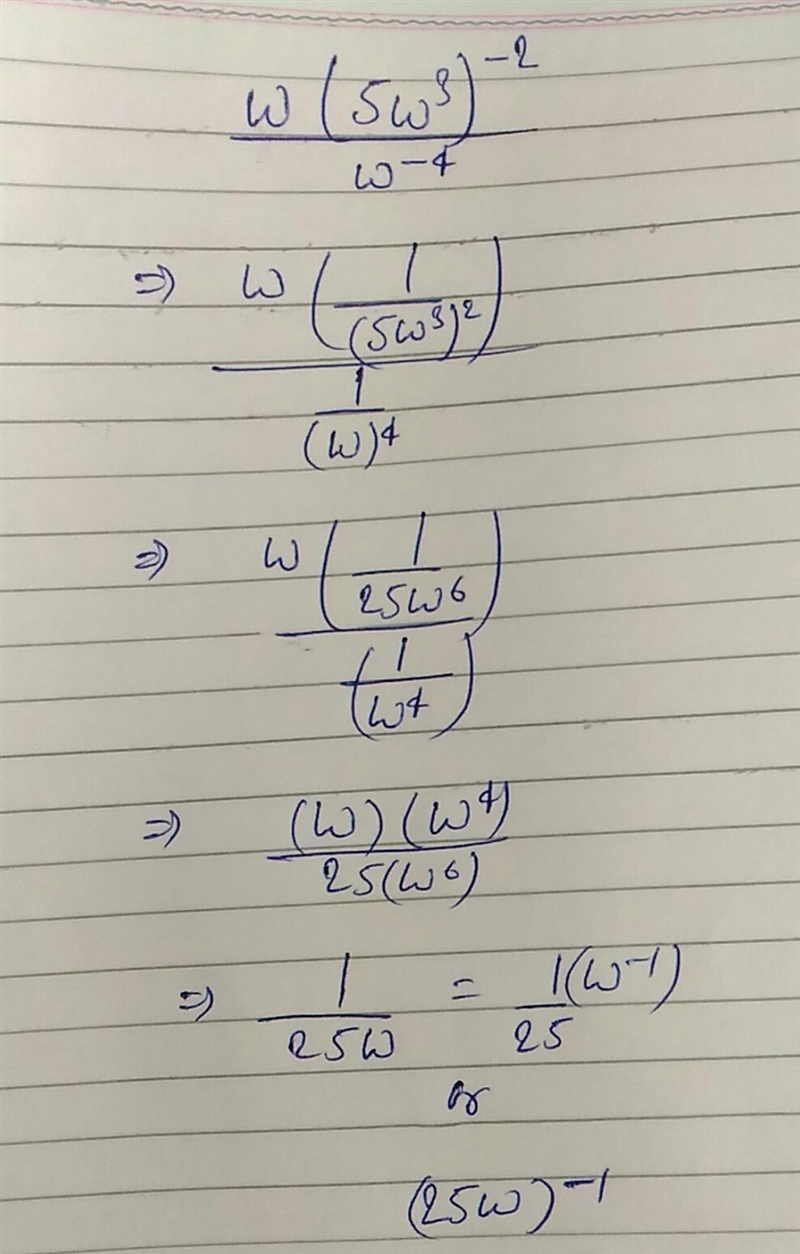 w (5w³)⁻² / w⁻⁴
⇒ w (1 / (5w³)²) / (1 / (w)⁴)
⇒ w (1 / 25w⁶) / (1 / w⁴)
⇒ (w) (w⁴) / 25(w⁶)
⇒ 1 / 25w = 1(w⁻¹) / 25
or
(25w)⁻¹